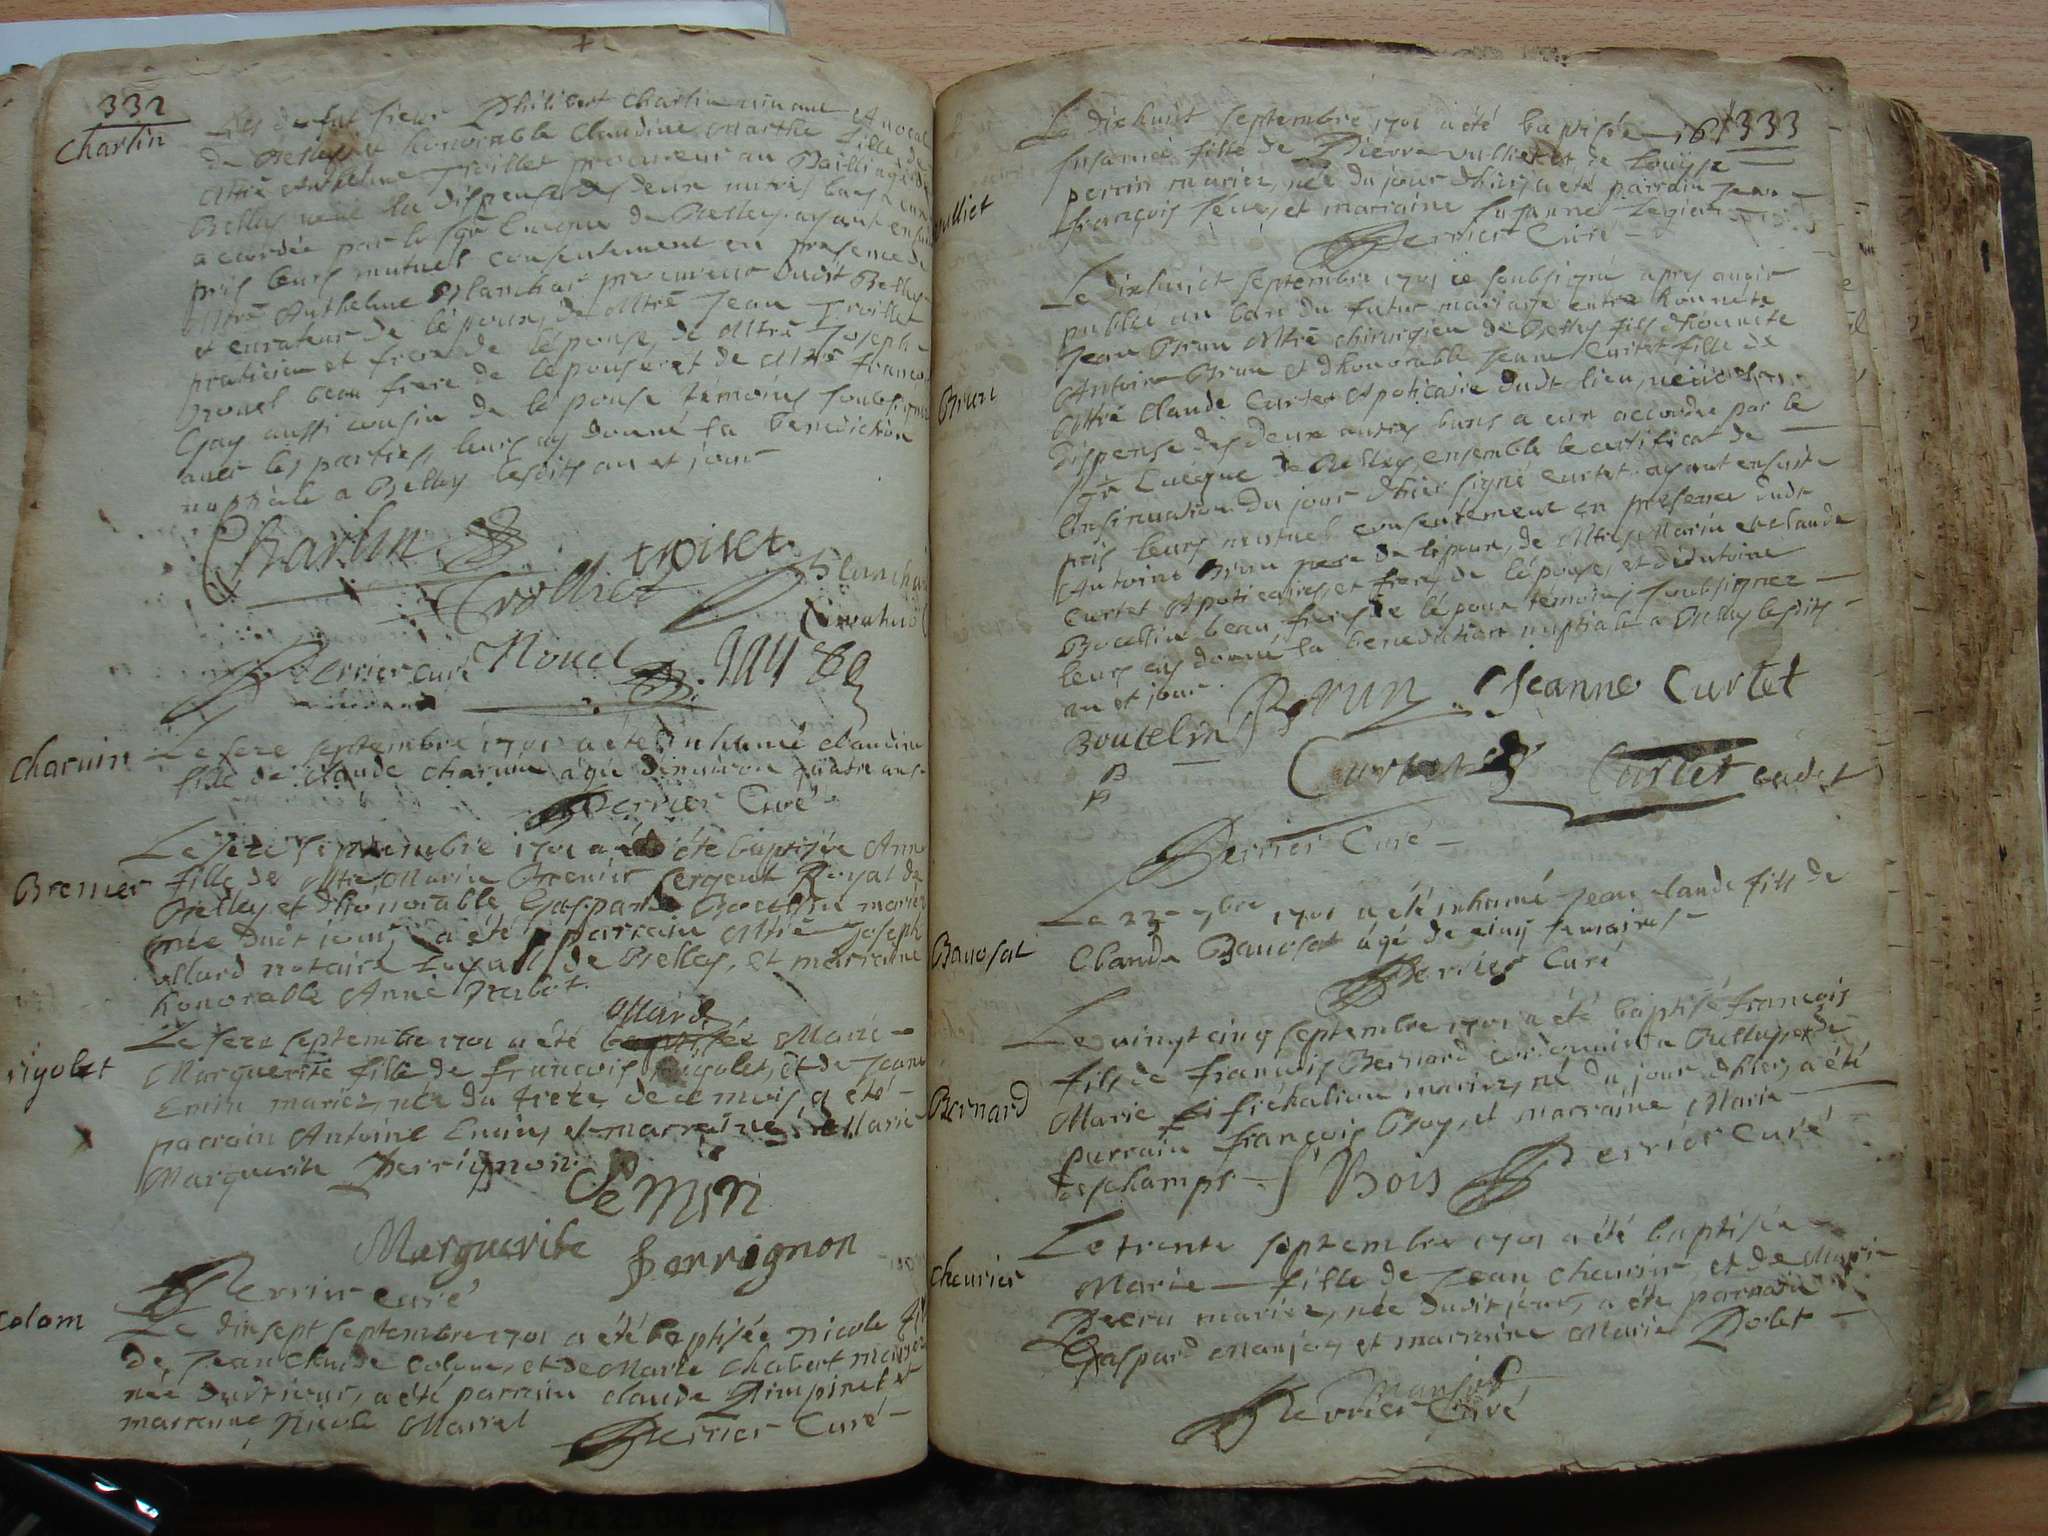 332
Charlin
fils de feut sieur Philibert Charlin vivant Avocat
de Belley et honorable Claudine Marthe fille de
Mtre Anthelme Trolliet procureur au Bailliage de
Belley veüe la dispense des deux autres bans a eux
accordée par le sgr Eueque de Belley ayant ensuite
pris leurs mutuel consentement en presence de
Mtre Anthelme Blanchar procureur dudit Belley
et curateur de lépoux, de Mtre Jean Trolliet
praticien et frere de lépouse, de Mtre Joseph
Nouel beau frere de lépouse, et de Mtre Francois
Gay aussi cousin de lépouse témoins soubsignés
avec les parties, leurs ay donné la benediction
nuptiale a Belley lesdits an et jour
Charlin
Trolliet
troilet
Blanchard
Curateur
Perrier curé Nouel Gay
Charuin
Le seze septembre 1701 a été inhumé claudine
fille de Claude Charuin agée denuiron quatre ans
Perrier Curé
Bremer
Le seze septembre 1701 a été baptisée Anne
fille de Mtre Marin Bremer sergent Royal de
Belley et dhonorable Gasparde Bocelin mariez
née dudt jour, a été parrain Mtre Joseph
Allard notaire Royal de Belley, et marraine
honorable Anne Rabot.
Allard
rigolet
Le seze septembre 1701 a été baptisée Marie
Marguerite fille de francois rigolet, et de Jeanne
Emin mariez, née du treze de ce mois, a été
parrain Antoine Emin, et marraine Marie
Marguerite Perrignon.
Semin
Marguerite perrignon
Perrier curé
Colom
Le dixsept septembre 1701 a été baptisée Nicole fille
de Jean Claude Colom, et de Marie Chabert mariez
née dudt jour, a été parrain claude Pimpinel et
marrenne Nicole Marrel
Perrier Curé
333
Vulliet
Le dixhuit septembre 1701 a été baptisée
Susanne fille de Pierre vulliet et de Louyse
perrin mariez, née du jour dhier, a été parrain Jean
françois Seue, et marraine susanne Legier
Perrier Curé
Brun
Le dixhuict septembre 1701 ie soubsigné apres auoir
publié un ban du futur mariage entre honnete
Jean Brun Mtre chirurgien de Belley fils dhonnete
Antoine Brun et dhonorable Jeane Curtet fille de
Mtre Claude Curtet Apoticaire dudt lieu, veüe la
dispense des deux autres bans a eux accordée par le
sgr Eueque de Belley, ensemble le certificat de
linsinuation du jour dhier signé curtet. ayant ensuite
pris leurs mutuel consentement en presence dudt
Antoine Brun pere de lépoux, de Mtres Marin et claude
Curtet Apoticaires, et freres de lépouse, et dAntoine
Bocelin beau frere de lépoux témoins soubsignez
leurs ay donné la benediction nuptiale a Belley lesdits
an et jour.
Boucelin Brun Jeanne Curtet
Curtet Curtet cadet
Perrier Curé
Bauosat
Le 22 7bre 1701 a été inhumé Jean claude fils de
Claude Bauosat agé de cinq semaines
Perrier Curé
Bernard
Le vingt cinq septembre 1701 a été baptisé françois
fils de françois Bernard cordonnier a Belley, et de
Marie mariez, né du jour dhier, a été
parrain françois Boy, et marraine Marie
deschamps
f Bois Perrier Curé
Cheurier
Le trente septembre 1701 a été baptisée
Marie fille de Jean Cheurier et de Marie
Decru mariez, née dudit jour, a été parrain
Gaspard Manjot, et marraine Marie Polet
Manjot
Perrier Curé